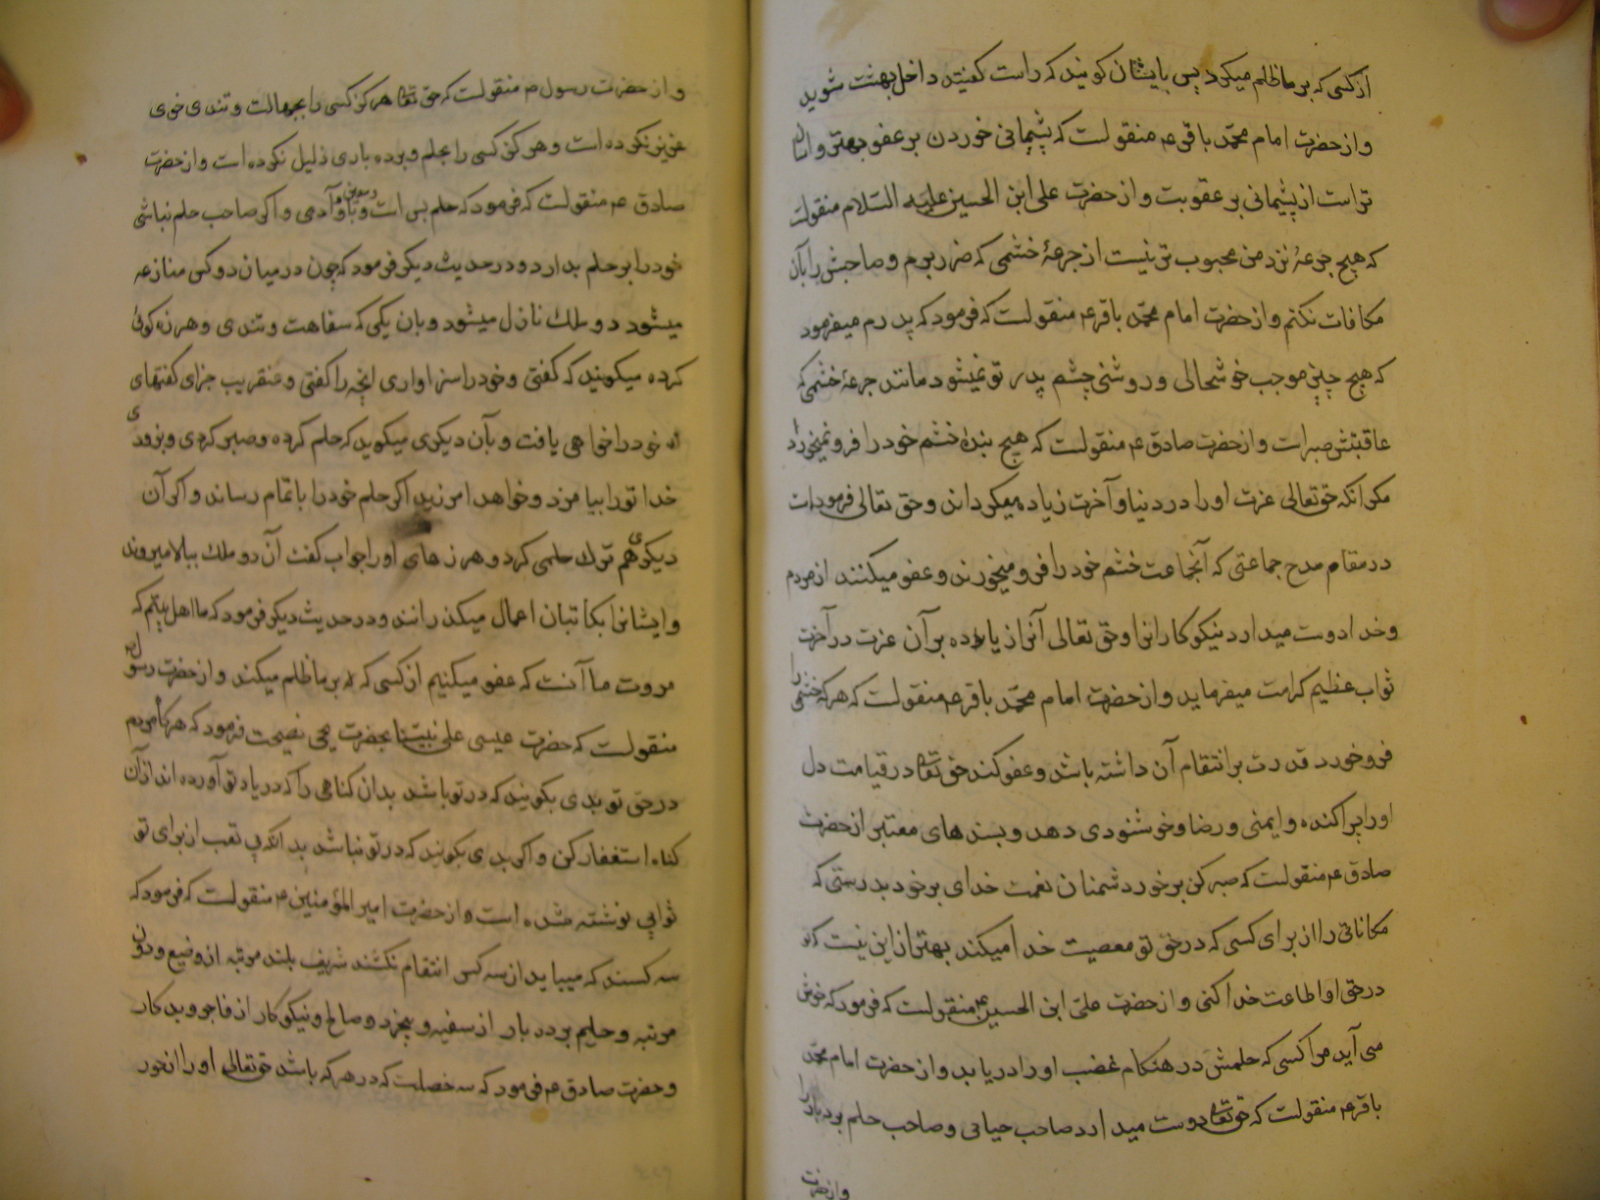 ازکسی که بر ما ظلم میکرد پس بایشان کویند که راست کفتید داخل بهشت شوید
و از حضرت امام محمّد باقر ع منقولست که پشیمانی خوردن بر عفو بهتر و اسان
تر است از پشیمانی بر عقوبت و از حضرت علی ابن الحسین علیه السّلام منقولست
که هیچ جرعهٔ نزد من محبوب تر نیست از جرعهٔ خشمی که فرو برم و صاحبش را بآن
مکافات نکنم و از حضرت امام محمّد باقر ع منقولست که فرمود که پدرم میفرمود
که هیچ چیز موجب خوشحالی و روشنی چشم پدر تو نمیشود مانند جرعهٔ خشمی که
عاقبتش صبر است و از حضرت صادق ع منقولست که هیچ بندهٔ خشم خود را فرو نمیخورد
مکر انکه حق تعالی عزت او را در دنیا و آخرت زیاده میکرداند و حق تعالی فرموده است
در مقام مدح جماعتی که آنجماعت خشم خود را فرو میخورند و عفو میکنند از مردم
و خدا دوست میدارد نیکوکارانرا و حق تعالی آنرا زیاده بر آن عزت در آخرت
ثواب عظیم کرامت میفرماید و از حضرت امام محمّد باقر ع منقولست که هر که خشمی را
فرو خورد قدرت بر انتقام آن داشته باشد و عفو کند حق تعا در قیامت دل
او را پر اکنده و ایمنی و رضا و خوشنودی دهد و بسندهای معتبر از حضرت
صادق ع منقولست که صبر کن بر خورد شمنان نعمت خدای بر خود بدرستی که
مکافاتی را از برای کسی که در حق تو معصیت خدا میکند بهتر از این نیست که تو
در حق او اطاعت خدا کنی و از حضرت علی ابن الحسین ع منقولست که فرمود که خوش
می آید مرا کسی که حلمش در هنکام غضب او را دریابد و از حضرت امام محمّد
باقر ع منقولست که حق تعا دوست میدارد صاحب حیا و صاحب حلم بردبار را
و از حضرت
و از حضرت رسول ص منقولست که حق تعا هرکز کسی را بجهالت و تندی خوی
عزیز نکرده است و هرکز کسی را بحلم و برده باری ذلیل نکرده است و از حضرت
صادق ع منقولست که فرمود که حلم بس است یاور آدمی و اکر صاحب حلم نباشی
خود را بر حلم بدار و در حدیث دیکر فرمود که چون در میان دو کس منازعه
میشود دو ملک نازل میشود و بان یکی که سفاهت و تندی و هرزه کوئی
کرده میکویند که کفتی و خود را سزاواری انچه را کفتی و عنقریب جزای کفتهای
خود را خواهی یافت و بآن دیکری میکویند که حلم کرده و صبر کردی و بزودی
خدا تو را بیامرزد و خواهد امرزید اکر حلم خود را باتمام رساند و اکر آن
دیکری هم ترک حلمی کرد و هرزهای او را جواب کفت آن دو ملک ببالا میروند
و ایشانرا بکاتبان اعمال میکذرانند و در حدیث دیکر فرمود که ما اهل بیتیم که
مروت ما آنست که عفو میکنیم از کسی که بر ما ظلم میکند و از حضرت رسول ص
منقولست که حضرت عیسی علی نبیّنا بحضرت یحیی نصیحت فرمود که هرکاه مردم
در حق تو بدی بکویند که در تو باشد بدان کناهی را که در یاد تو آورده اند از آن
کناه استغفار کن و اکر بدی بکویند که در تو نباشد بدانکه بی تعب از برای تو
ثوابی نوشته شده است و از حضرت امیر المؤمنین ع منقولست که فرمود که
سه کسند که میباید از سه کس انتقام نکشند شریف بلند مرتبه از وضیع و دون
مرتبه و حلیم بردبار از سفیه و بیخرد و صالح و نیکوکار از فاجر و بدکار
و حضرت صادق ع فرمود که سه خصلت که در هر که باشد حق تعالی او را از حور